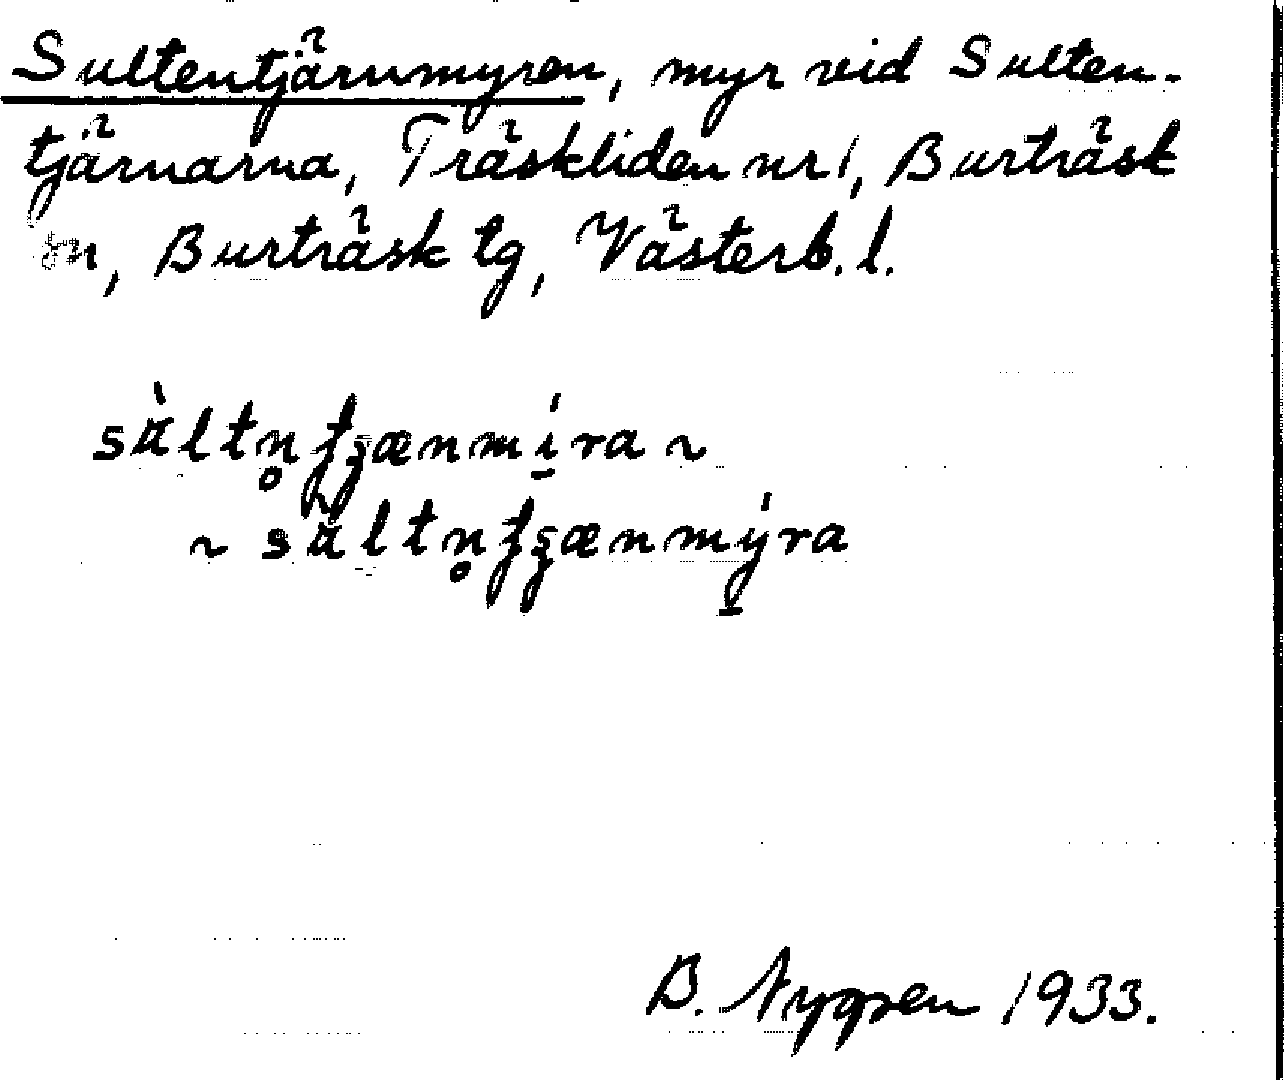 Sultentjärnmyren, myr vid Sulten-
tjärnarna, Träskliden nr 1, Burträsk
sn, Burträsk tg, Västerb. l.
sùltn̥ʈʂænmí̱ra ~
~ sùltn̥ʈʂænmý̱ra
B. Nygren 1933.